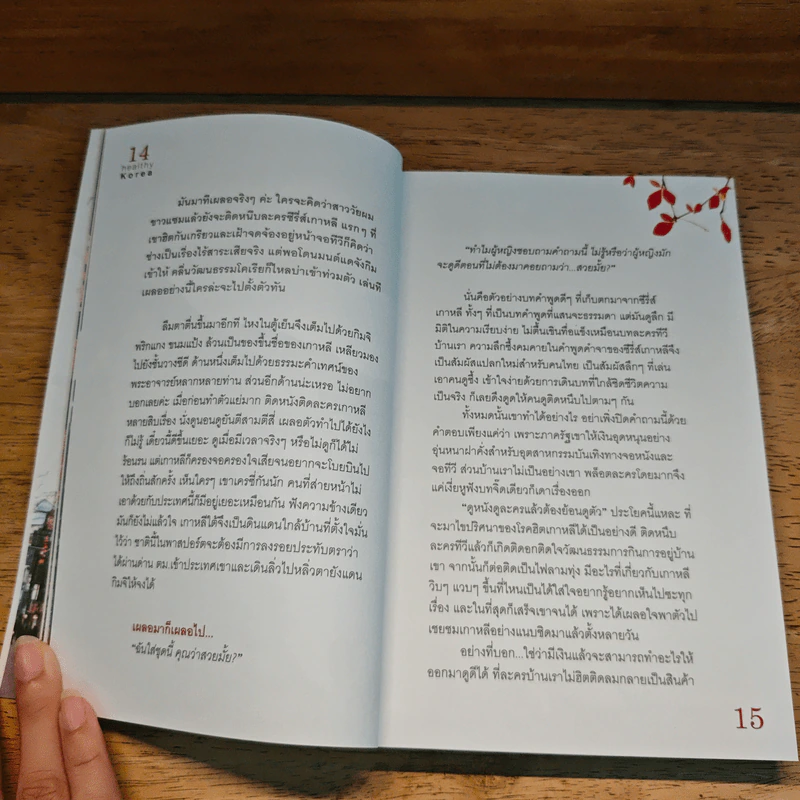 14
healthy
Korea
มันมาทีเผลอจริงๆ ค่ะ ใครจะคิดว่าสาววัยผม
ขาวแซมแล้วยังจะติดหนึบละครซีรี่ส์เกาหลี แรกๆ ที่
เขาฮิตกันเกรียวและเฝ้าจดจ้องอยู่หน้าจอทีวีก็คิดว่า
ช่างเป็นเรื่องไร้สาระเสียจริง แต่พอโดนมนต์แดจังกึม
เข้าให้ คลื่นวัฒนธรรมโคเรียก็ไหลบ่าเข้าท่วมตัว เล่นที
เผลออย่างนี้ใครล่ะจะไปตั้งตัวทัน
ลืมตาตื่นขึ้นมาอีกที ไหงในตู้เย็นจึงเต็มไปด้วยกิมจิ
พริกแกง ขนมแป้ง ล้วนเป็นของขึ้นชื่อของเกาหลี เหลียวมอง
ไปยังชั้นวางซีดี ด้านหนึ่งเต็มไปด้วยธรรมะคำเทศน์ของ
พระอาจารย์หลากหลายท่าน ส่วนอีกด้านน่ะเหรอ ไม่อยาก
บอกเลยค่ะ เมื่อก่อนทำตัวแย่มาก ติดหนังติดละครเกาหลี
หลายสิบเรื่อง นั่งดูนอนดูยันตีสามตีสี่ เผลอตัวทำไปได้ยังไง
ก็ไม่รู้ เดี๋ยวนี้ดีขึ้นเยอะ ดูเมื่อมีเวลาจริงๆ หรือไม่ดูก็ได้ไม่
ร้อนรน แต่เกาหลีก็ครองจอครองใจเสียจนอยากจะโบยบินไป
ให้ถึงถิ่นสักครั้ง เห็นใครๆ เขาเครซี่กันนัก คนที่ส่ายหน้าไม่
เอาด้วยกับประเทศนี้ก็มีอยู่เยอะเหมือนกัน ฟังความข้างเดียว
มันก็ยังไม่แล้วใจ เกาหลีใต้จึงเป็นดินแดนใกล้บ้านที่ตั้งใจมั่น
ไว้ว่า ชาตินี้ในพาสปอร์ตจะต้องมีการลงรอยประทับตราว่า
ได้ผ่านด่าน ตม.เข้าประเทศเขาและเดินลิ่วไปหลิ่วตายังแดน
กิมจิให้จงได้
เผลอมาก็เผลอไป...
“ฉันใส่ชุดนี้ คุณว่าสวยมั้ย?”
“ทำไมผู้หญิงชอบถามคำถามนี้ ไม่รู้หรือว่าผู้หญิงมัก
จะดูดีตอนที่ไม่ต้องมาคอยถามว่า...สวยมั้ย?”
นั่นคือตัวอย่างบทคำพูดดีๆ ที่เก็บตกมาจากซีรี่ส์
เกาหลี ทั้งๆ ที่เป็นบทคำพูดที่แสนจะธรรมดา แต่มันดูลึก มี
มิติในความเรียบง่าย ไม่ตื้นเขินทื่อแข็งเหมือนบทละครทีวี
บ้านเรา ความลึกซึ้งคมคายในคำพูดคำจาของซีรี่ส์เกาหลีจึง
เป็นสัมผัสแปลกใหม่สำหรับคนไทย เป็นสัมผัสลึกๆ ที่เล่น
เอาคนดูซึ้ง เข้าใจง่ายด้วยการเดินบทที่ใกล้ชิดชีวิตความ
เป็นจริง ก็เลยดึงดูดให้คนดูติดหนึบไปตามๆ กัน
ทั้งหมดนั้นเขาทำได้อย่างไร อย่าเพิ่งปิดคำถามนี้ด้วย
คำตอบเพียงแค่ว่า เพราะภาครัฐเขาให้เงินอุดหนุนอย่าง
อุ่นหนาฝาคั่งสำหรับอุตสาหกรรมบันเทิงทางจอหนังและ
จอทีวี ส่วนบ้านเราไม่เป็นอย่างเขา พล็อตละครโดยมากจึง
แค่เงี่ยหูฟังบทจิ๊ดเดียวก็เดาเรื่องออก
“ดูหนังดูละครแล้วต้องย้อนดูตัว” ประโยคนี้แหละ ที่
จะมาไขปริศนาของโรคฮิตเกาหลีได้เป็นอย่างดี ติดหนึบ
ละครทีวีแล้วก็เกิดติดอกติดใจวัฒนธรรมการกินการอยู่บ้าน
เขา จากนั้นก็ต่อติดเป็นไฟลามทุ่ง มีอะไรที่เกี่ยวกับเกาหลี
วิบๆ แวบๆ ขึ้นที่ไหนเป็นได้ใส่ใจอยากรู้อยากเห็นไปซะทุก
เรื่อง และในที่สุดก็เสร็จเขาจนได้ เพราะได้เผลอใจพาตัวไป
เชยชมเกาหลีอย่างแนบชิดมาแล้วตั้งหลายวัน
อย่างที่บอก...ใช่ว่ามีเงินแล้วจะสามารถทำอะไรให้
ออกมาดูดีได้ ที่ละครบ้านเราไม่ฮิตติดลมกลายเป็นสินค้า
15